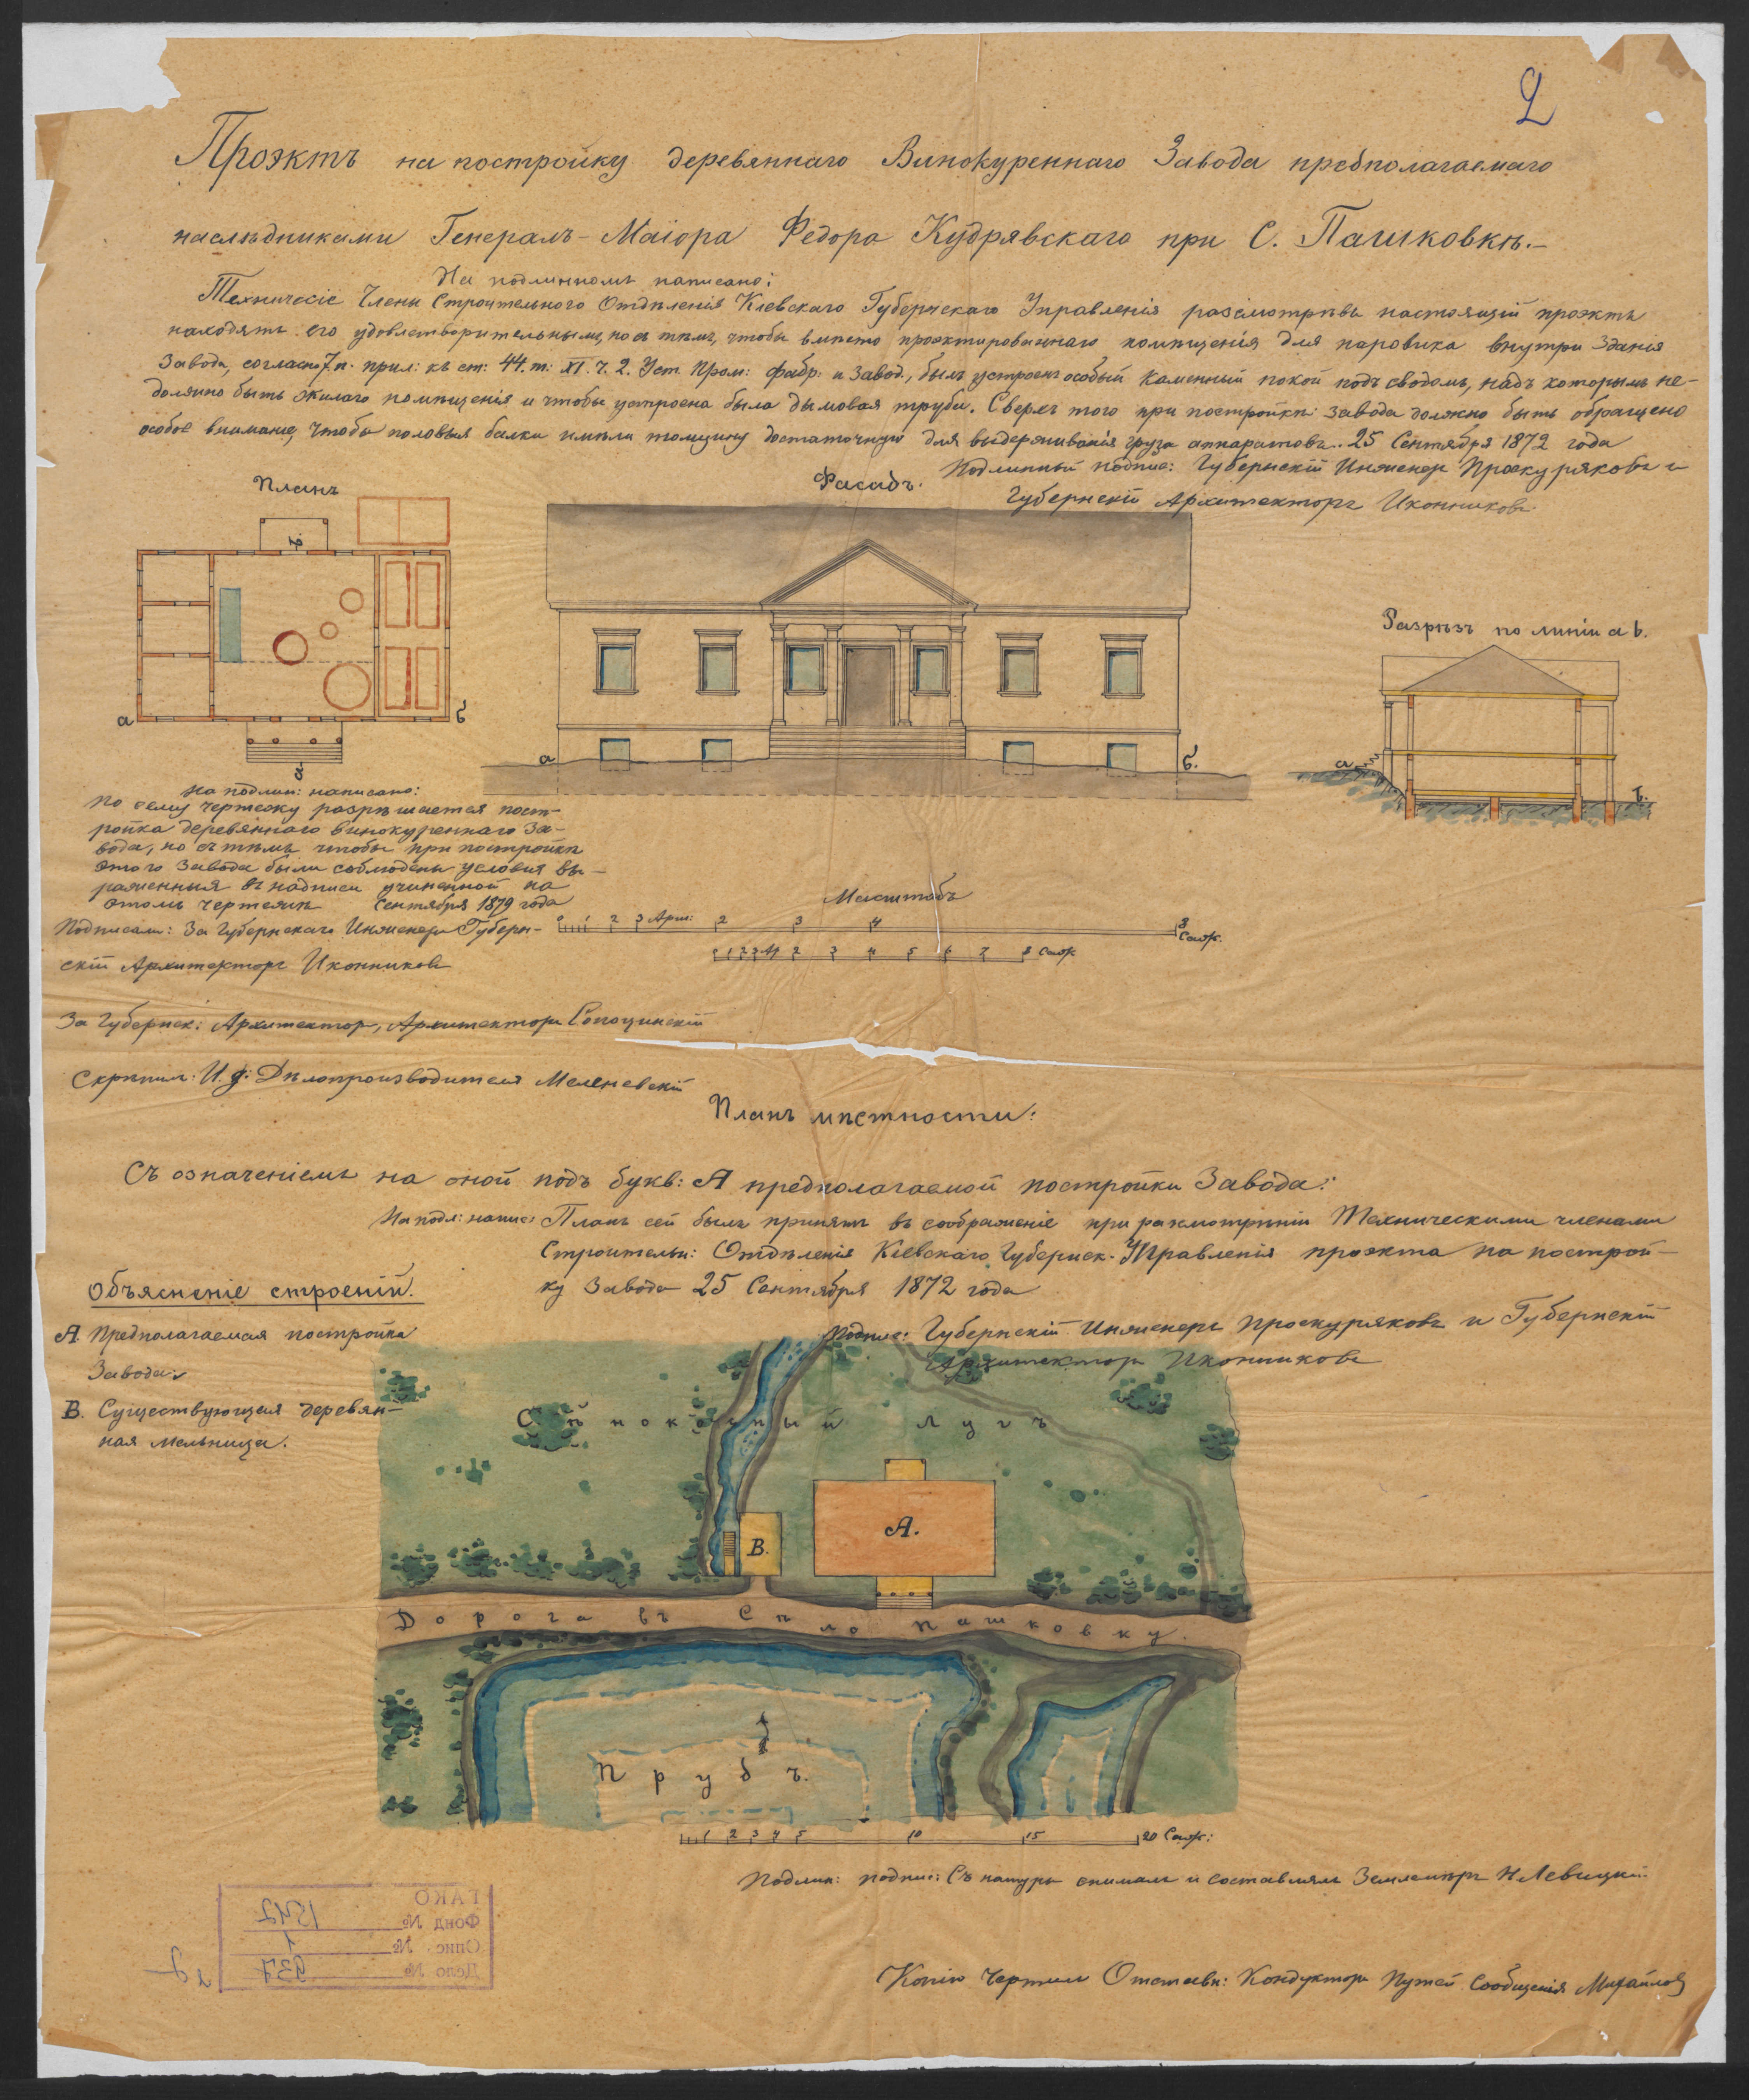 2
Проэктъ на постройку деревяннаго Винокуреннаго Завода предполагаемаго
наслѣдниками Генералъ-Маіора Федора Кудрявскаго при С. Пашковкѣ.-
На подлинномъ написано:
Техническіе Члены Строительнаго Отдѣленія Кіевскаго Губернскаго Управленія разсмотрѣвъ настоящій проэктъ
находятъ его удовлетворительнымъ, но съ тѣмъ, чтобы вмѣсто проэктированнаго помѣщенія для паровика внутри зданія
Завода, согласно 7 п. прил: къ ст: 44. т: XI. ч. 2. Уст. Пром: фабр: и Завод., былъ устроенъ особый каменный покой подъ сводомъ, надъ которымъ не-
должно быть жилаго помѣщенія и чтобы устроена была дымовая труба. Сверхъ того при постройкѣ завода должно быть обращено
особое вниманіе, чтобы половыя балки имѣли толщину достаточную для выдерживанія груза аппаратовъ.. 25 Сентября 1872 года
Подлинный подпис: Губернскій Инженеръ Проскуряковъ и
Губернскій Архитекторъ Иконниковъ.
Планъ
Фасадъ.
Разрѣзъ по линіи а b.
а
б
а
б.
а
b.
На подлин: написано:
По сему чертежу разрѣшается пост-
ройка деревяннаго винокуреннаго За-
вода, но съ тѣмъ чтобы при постройкѣ
этого Завода были соблюдены условія вы-
раженныя въ надписи учиненной на
этомъ чертежѣ Сентября 1879 года
Подписали: За Губернскаго Инженера Губерн-
скій Архитекторъ Иконниковъ
За Губернск: Архитектор, Архитекторъ Сопоцинскій
Скрѣпилъ: И. д: Дѣлопроизводителя Меленевскій
Масштабъ
0 1 2 3 Арш: 2 3 4 8 Саж.
1 2 3 2 3 4 5 6 7 8 Саж
Планъ мѣстности:
Съ означеніемъ на оной подъ букв: А предполагаемой постройки Завода:
На подл: напис: Планъ сей былъ принятъ въ соображеніе при разсмотрѣніи Техническими членами
Строительн: Отдѣленія Кіевскаго Губернск. Управленія проэкта на построй-
ку Завода 25 Сентября 1872 года
Подпис: Губернскій Инженеръ Проскуряковъ и Губернскій
Архитекторъ Иконниковъ
Объясненіе строеній.
А. Предполагаемая постройка
Завода.
В. Существующая деревян-
ная мельница.
Сѣнокосный лугъ
А.
В.
Дорога въ Село Пашковку.
Прудъ.
1 2 3 4 5 10 15 20 Саж:
Подлин: подпис: Съ натуры снималъ и составлялъ Землемѣръ Н Левицкій
ГАКО
Фонд № 1542
Опис. № 1
Дело № 937
Копію чертилъ Отставн: Кондукторъ Путей Сообщенія Михайловъ